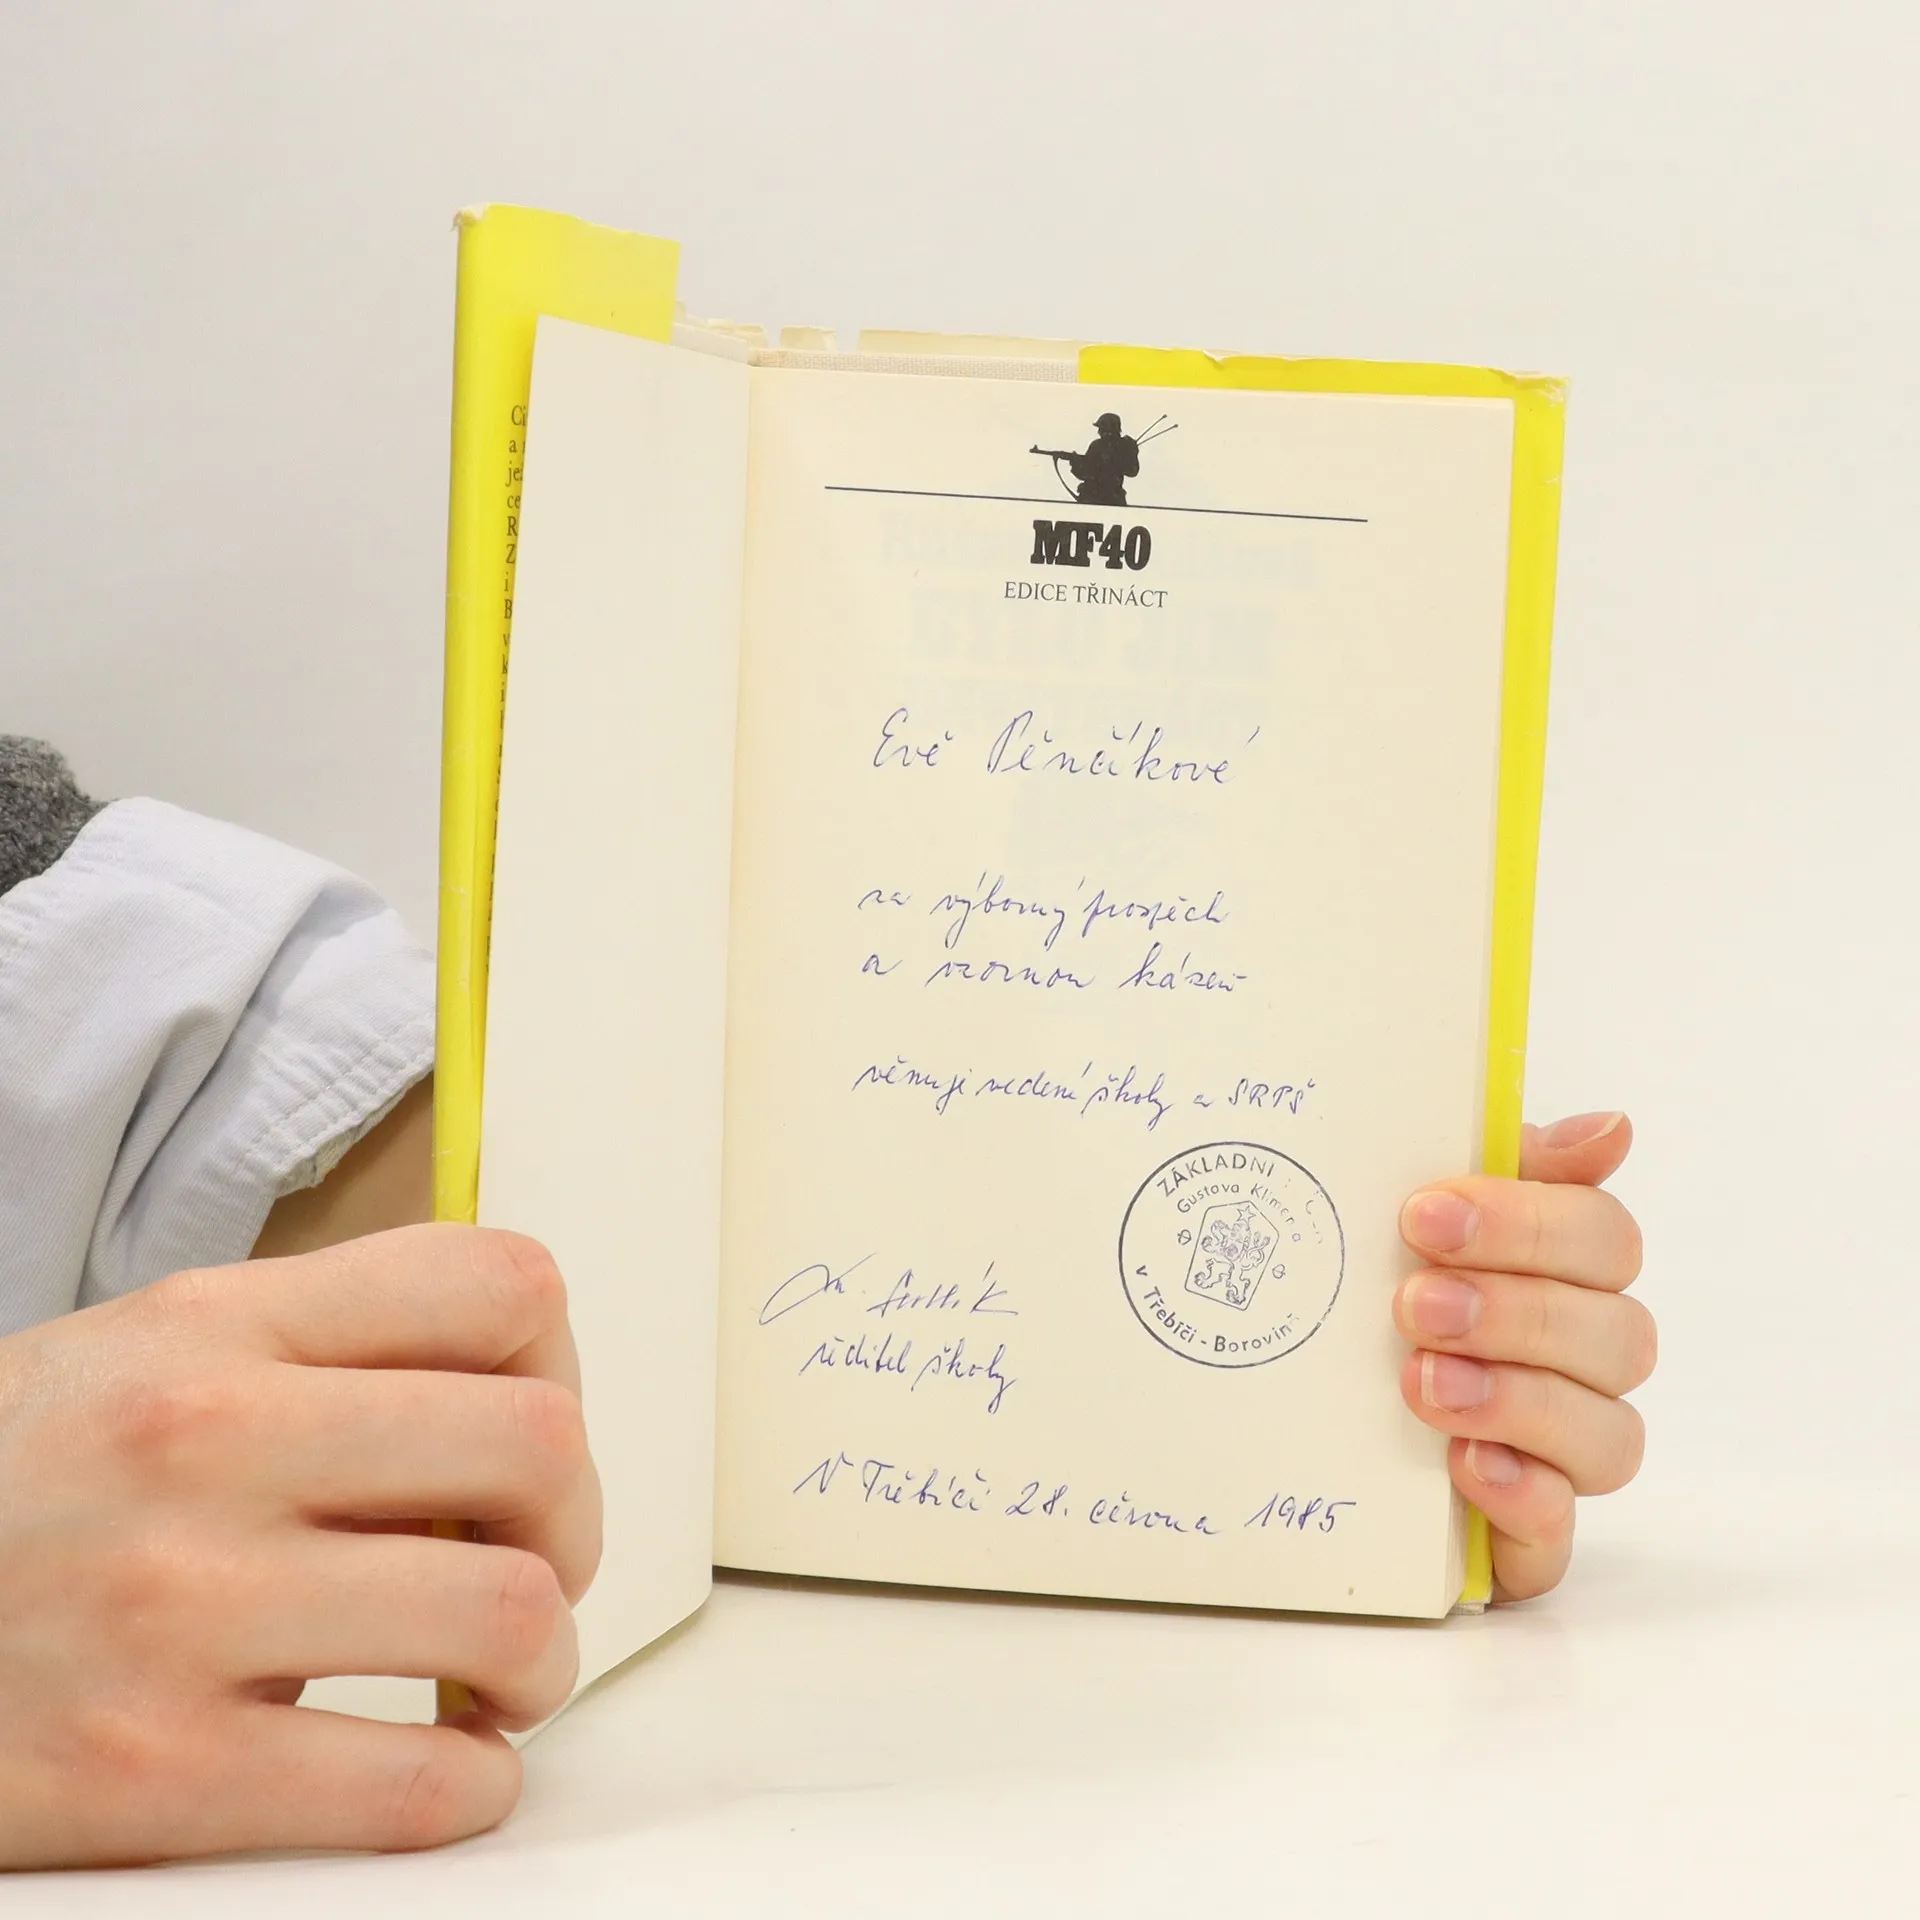 MF40
EDICE TŘINÁCT
Evě Pěnčíkové
za výborný prospěch
a vzornou kázeň
věnuje vedení školy a SRPŠ
ZÁKLADNÍ
Gustava Klimenta
v Třebíči - Borovině
ředitel školy
V Třebíči 28. června 1985
Ci
a
je
ce
R
Z
i
B